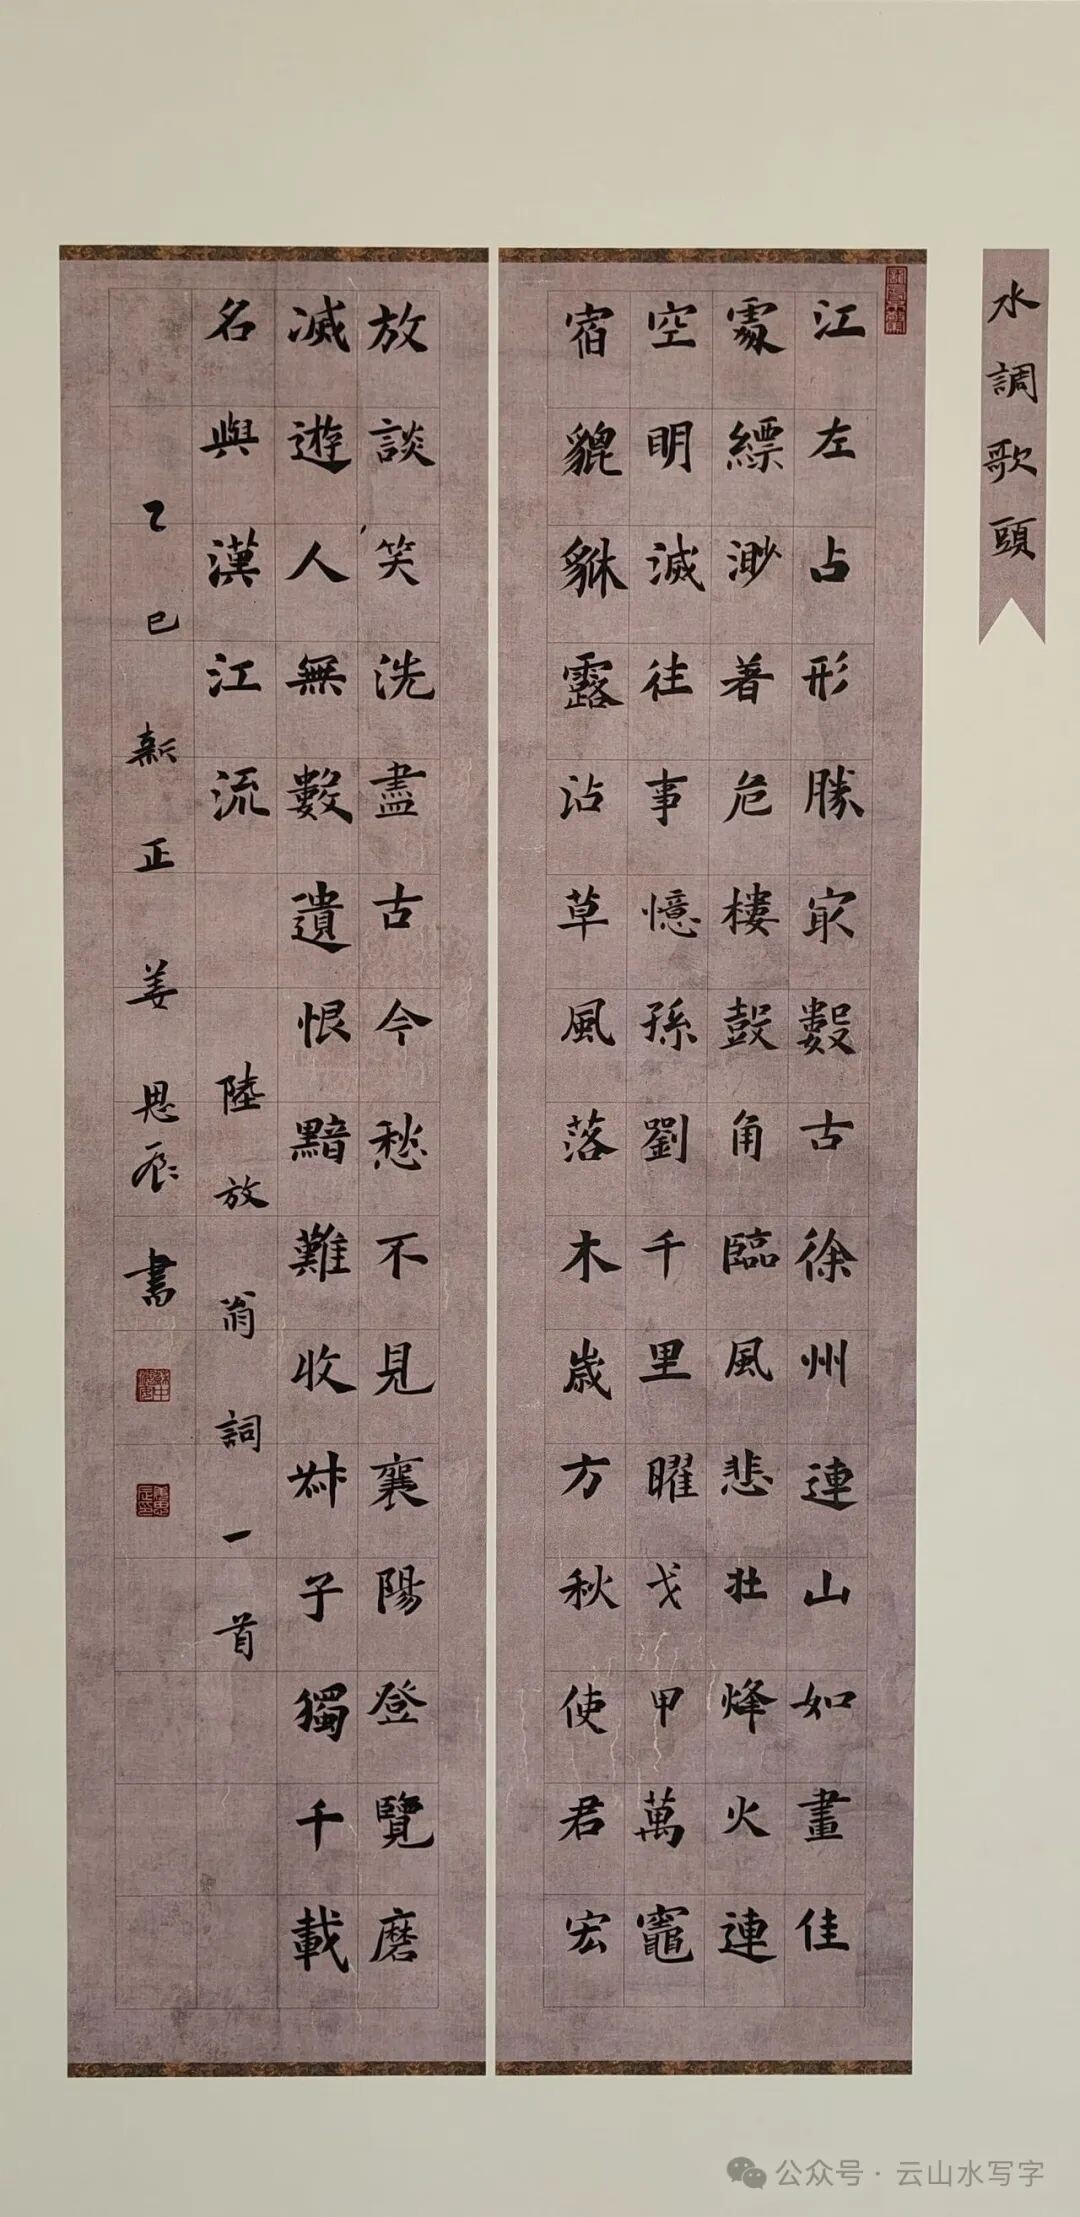 水調歌頭
江左占形勝冣數古徐州連山如畫佳
處縹渺著危樓鼓角臨風悲壯烽火連
空明滅往事憶孫劉千里曜戈甲萬竈
宿貔貅露沾草風落木歲方秋使君宏
放談笑洗盡古今愁不見襄陽登覽磨
滅遊人無數遺恨黯難收叔子獨千載
名與漢江流 陸放翁詞一首
乙巳新正姜思辰書
公众号 · 云山水写字